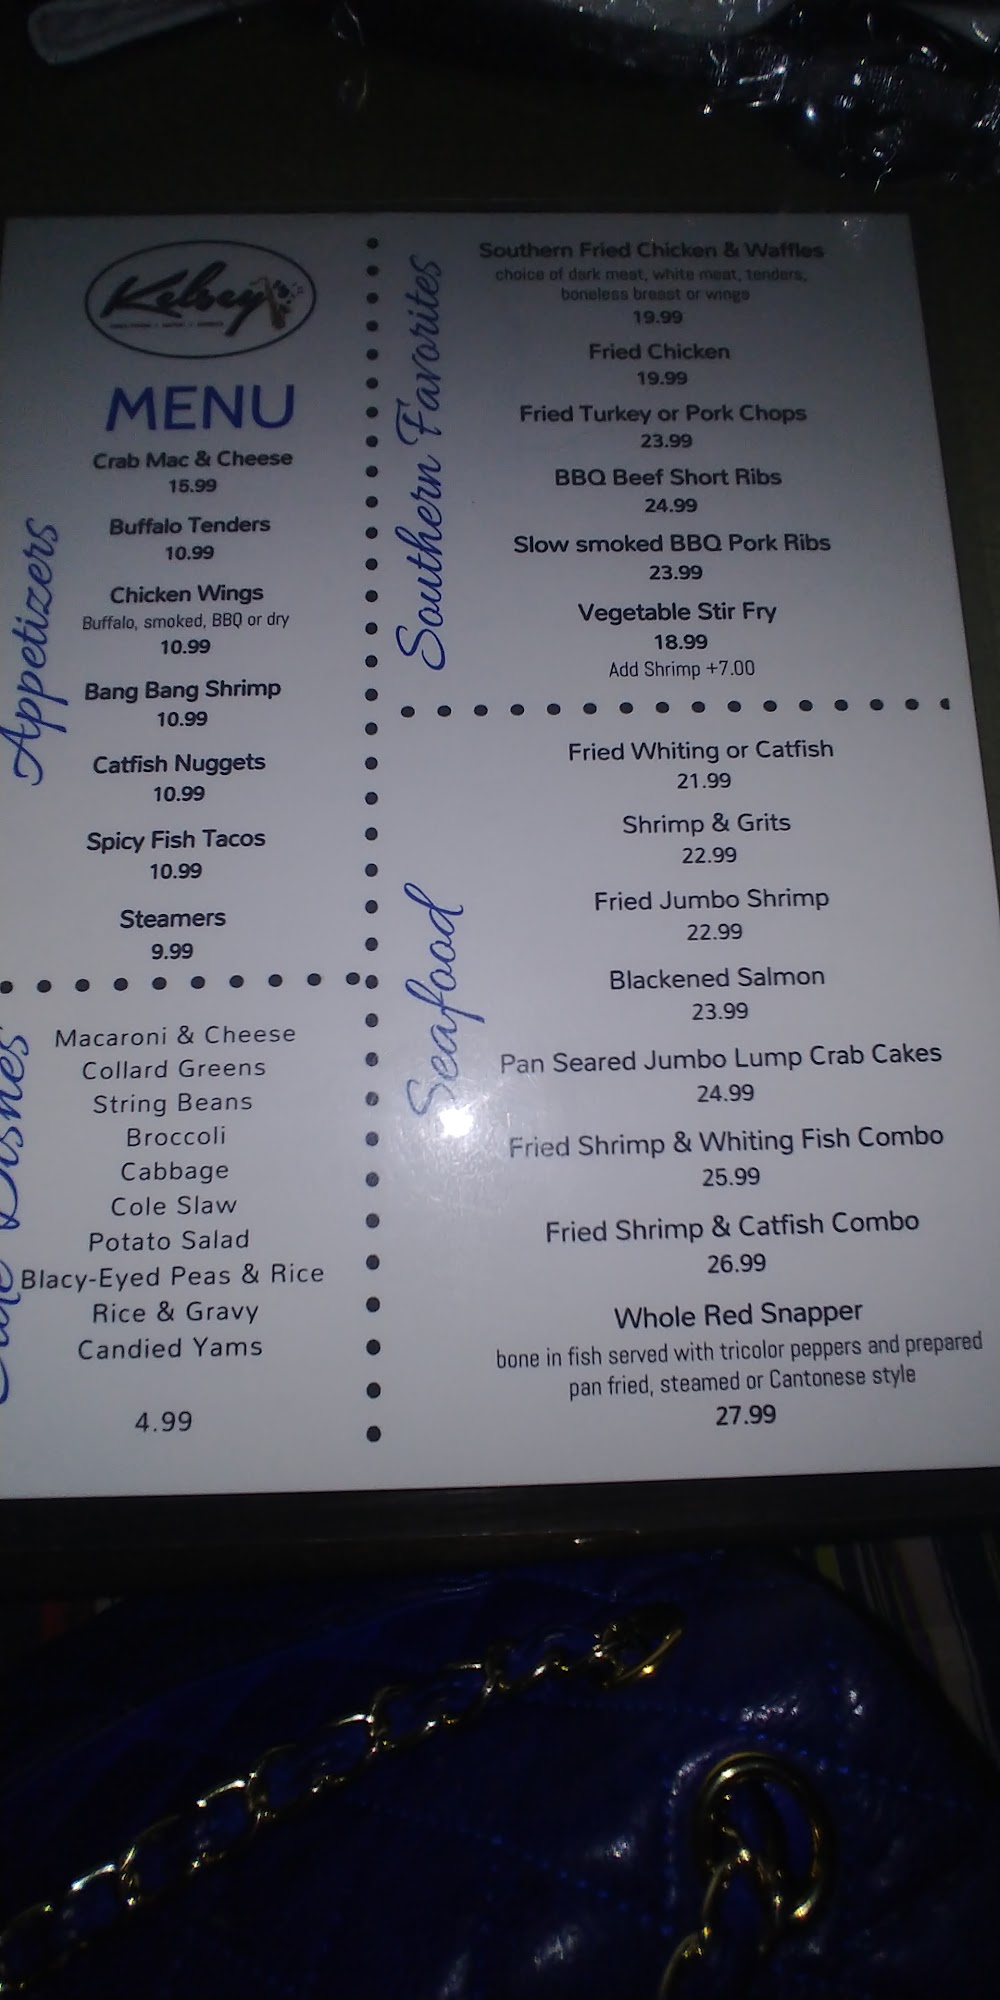 Kelsey's
MENU
Appetizers
Crab Mac & Cheese
15.99
Buffalo Tenders
10.99
Chicken Wings
Buffalo, smoked, BBQ or dry
10.99
Bang Bang Shrimp
10.99
Catfish Nuggets
10.99
Spicy Fish Tacos
10.99
Steamers
9.99
Side Dishes
Macaroni & Cheese
Collard Greens
String Beans
Broccoli
Cabbage
Cole Slaw
Potato Salad
Blacy-Eyed Peas & Rice
Rice & Gravy
Candied Yams
4.99
Southern Favorites
Southern Fried Chicken & Waffles
choice of dark meat, white meat, tenders,
boneless breast or wings
19.99
Fried Chicken
19.99
Fried Turkey or Pork Chops
23.99
BBQ Beef Short Ribs
24.99
Slow smoked BBQ Pork Ribs
23.99
Vegetable Stir Fry
18.99
Add Shrimp +7.00
Seafood
Fried Whiting or Catfish
21.99
Shrimp & Grits
22.99
Fried Jumbo Shrimp
22.99
Blackened Salmon
23.99
Pan Seared Jumbo Lump Crab Cakes
24.99
Fried Shrimp & Whiting Fish Combo
25.99
Fried Shrimp & Catfish Combo
26.99
Whole Red Snapper
bone in fish served with tricolor peppers and prepared
pan fried, steamed or Cantonese style
27.99